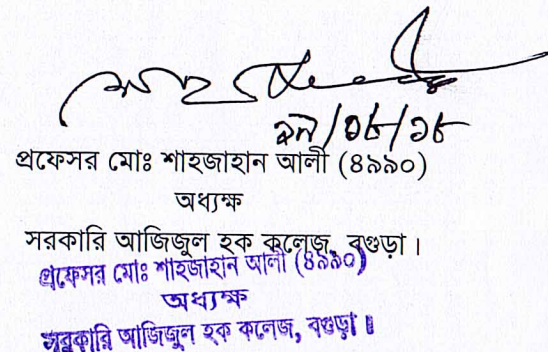 প্রফেসর মোঃ শাহজাহান আলী (৪৯৯০)
অধ্যক্ষ
সরকারি আজিজুল হক কলেজ, বগুড়া।
প্রফেসর মোঃ শাহজাহান আলী (৪৯৯০)
অধ্যক্ষ
সরকারি আজিজুল হক কলেজ, বগুড়া।